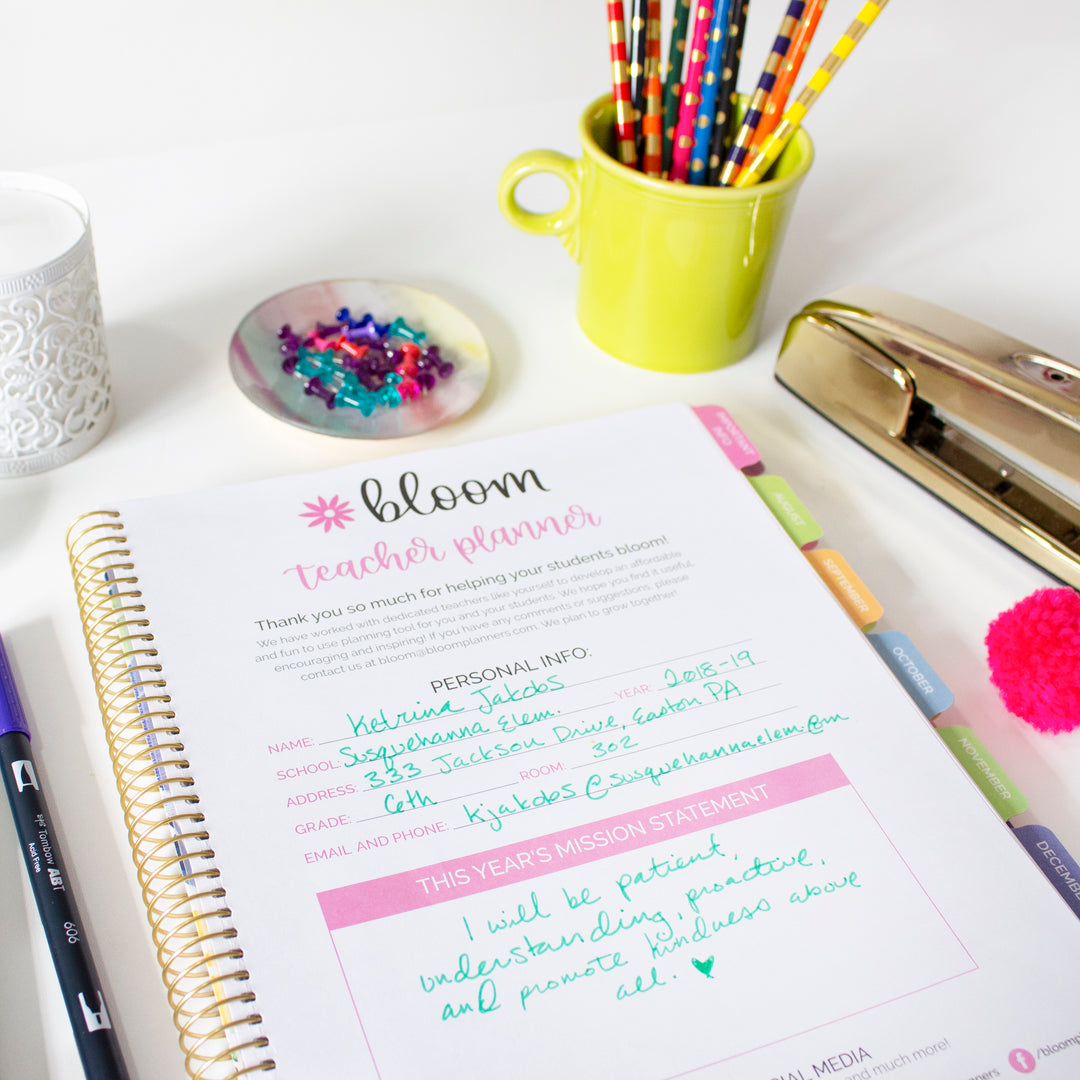 bloom
teacher planner
Thank you so much for helping your students bloom!
We have worked with dedicated teachers like yourself to develop an affordable
and fun to use planning tool for you and your students. We hope you find it useful,
encouraging and inspiring! If you have any comments or suggestions, please
contact us at bloom@bloomplanners.com. We plan to grow together!
PERSONAL INFO:
NAME: Ketrina Jakobs
SCHOOL: Susquehanna Elem. YEAR: 2018-19
ADDRESS: 333 Jackson Drive, Easton PA
GRADE: 6th ROOM: 302
EMAIL AND PHONE: kjakobs@susquehannaelem.com
THIS YEAR'S MISSION STATEMENT
I will be patient,
understanding, proactive,
and promote kindness above
all.
IAL MEDIA
and much more!
/bloomp
IMPORTANT
INFO
AUGUST
SEPTEMBER
OCTOBER
NOVEMBER
DECEMBE
Tombow ABT
Acid Free
606